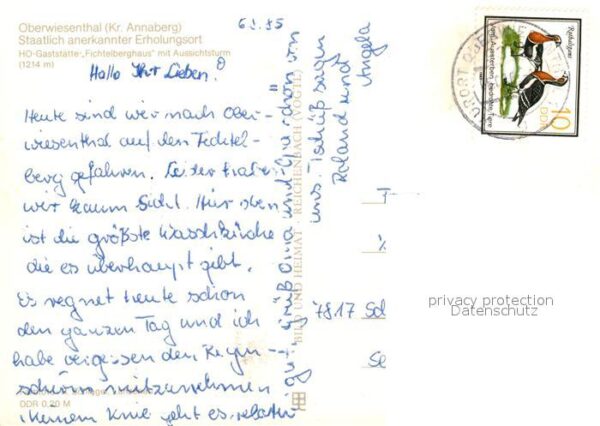 Oberwiesenthal (Kr. Annaberg)
Staatlich anerkannter Erholungsort
HO-Gaststätte „Fichtelberghaus“ mit Aussichtsturm
(1214 m)
Hallo Ihr Lieben!
Heute sind wir nach Ober-
wiesenthal auf den Fichtel-
berg gefahren. Leider haben
wir kaum Sicht. Hier oben
ist die größte Waschküche
die es überhaupt gibt.
Es regnet heute schon
den ganzen Tag und ich
habe vergessen den Regen-
schirm mitzunehmen
meinem Knie geht es relativ
gut. Grüß Oma und schön von
uns Tschüß sagen
Roland und
Angela
BILD UND HEIMAT · REICHENBACH (VOGTL)
DDR 0,20 M
7817
Se
Rothalsgans
Vom Aussterben bedrohte Tiere
DDR
10
KURORT OBER
privacy protection
Datenschutz